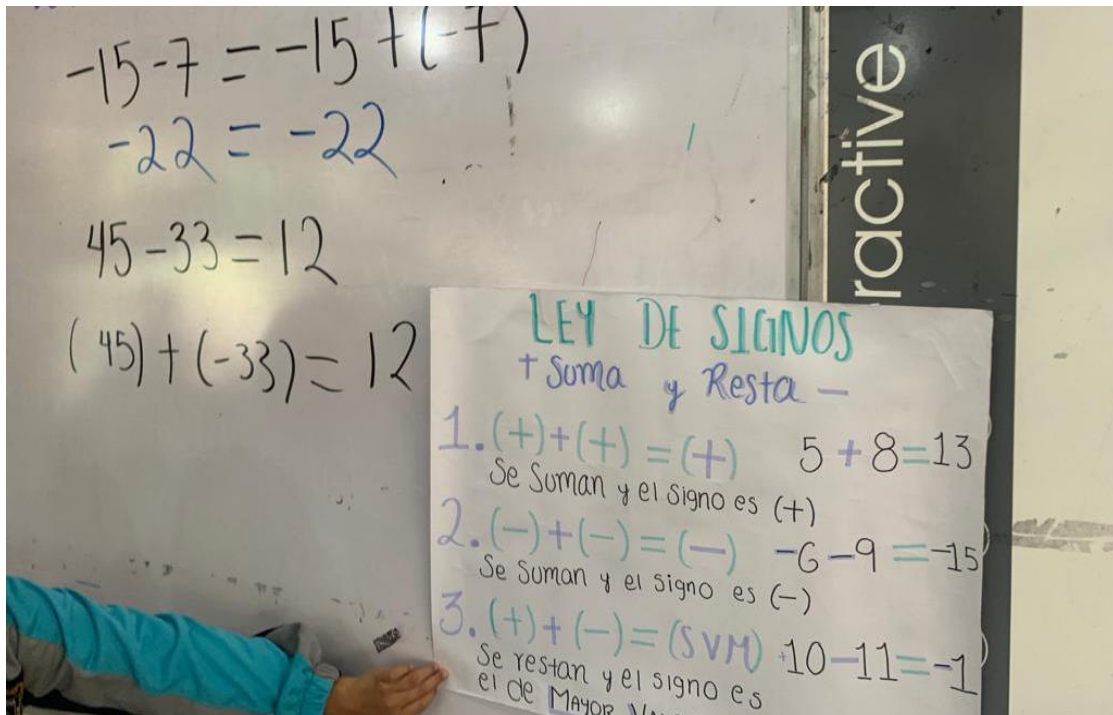 -15-7 = -15 + (-7)
-22 = -22
45-33 = 12
(45) + (-33) = 12
ractive
LEY DE SIGNOS
+ Suma y Resta -
1. (+)+(+) = (+) 5 + 8 = 13
Se Suman y el signo es (+)
2. (-)+(-) = (-) -6-9 = -15
Se Suman y el signo es (-)
3. (+)+(-) = (SVM) +10-11 = -1
Se restan y el signo es
el de MAYOR